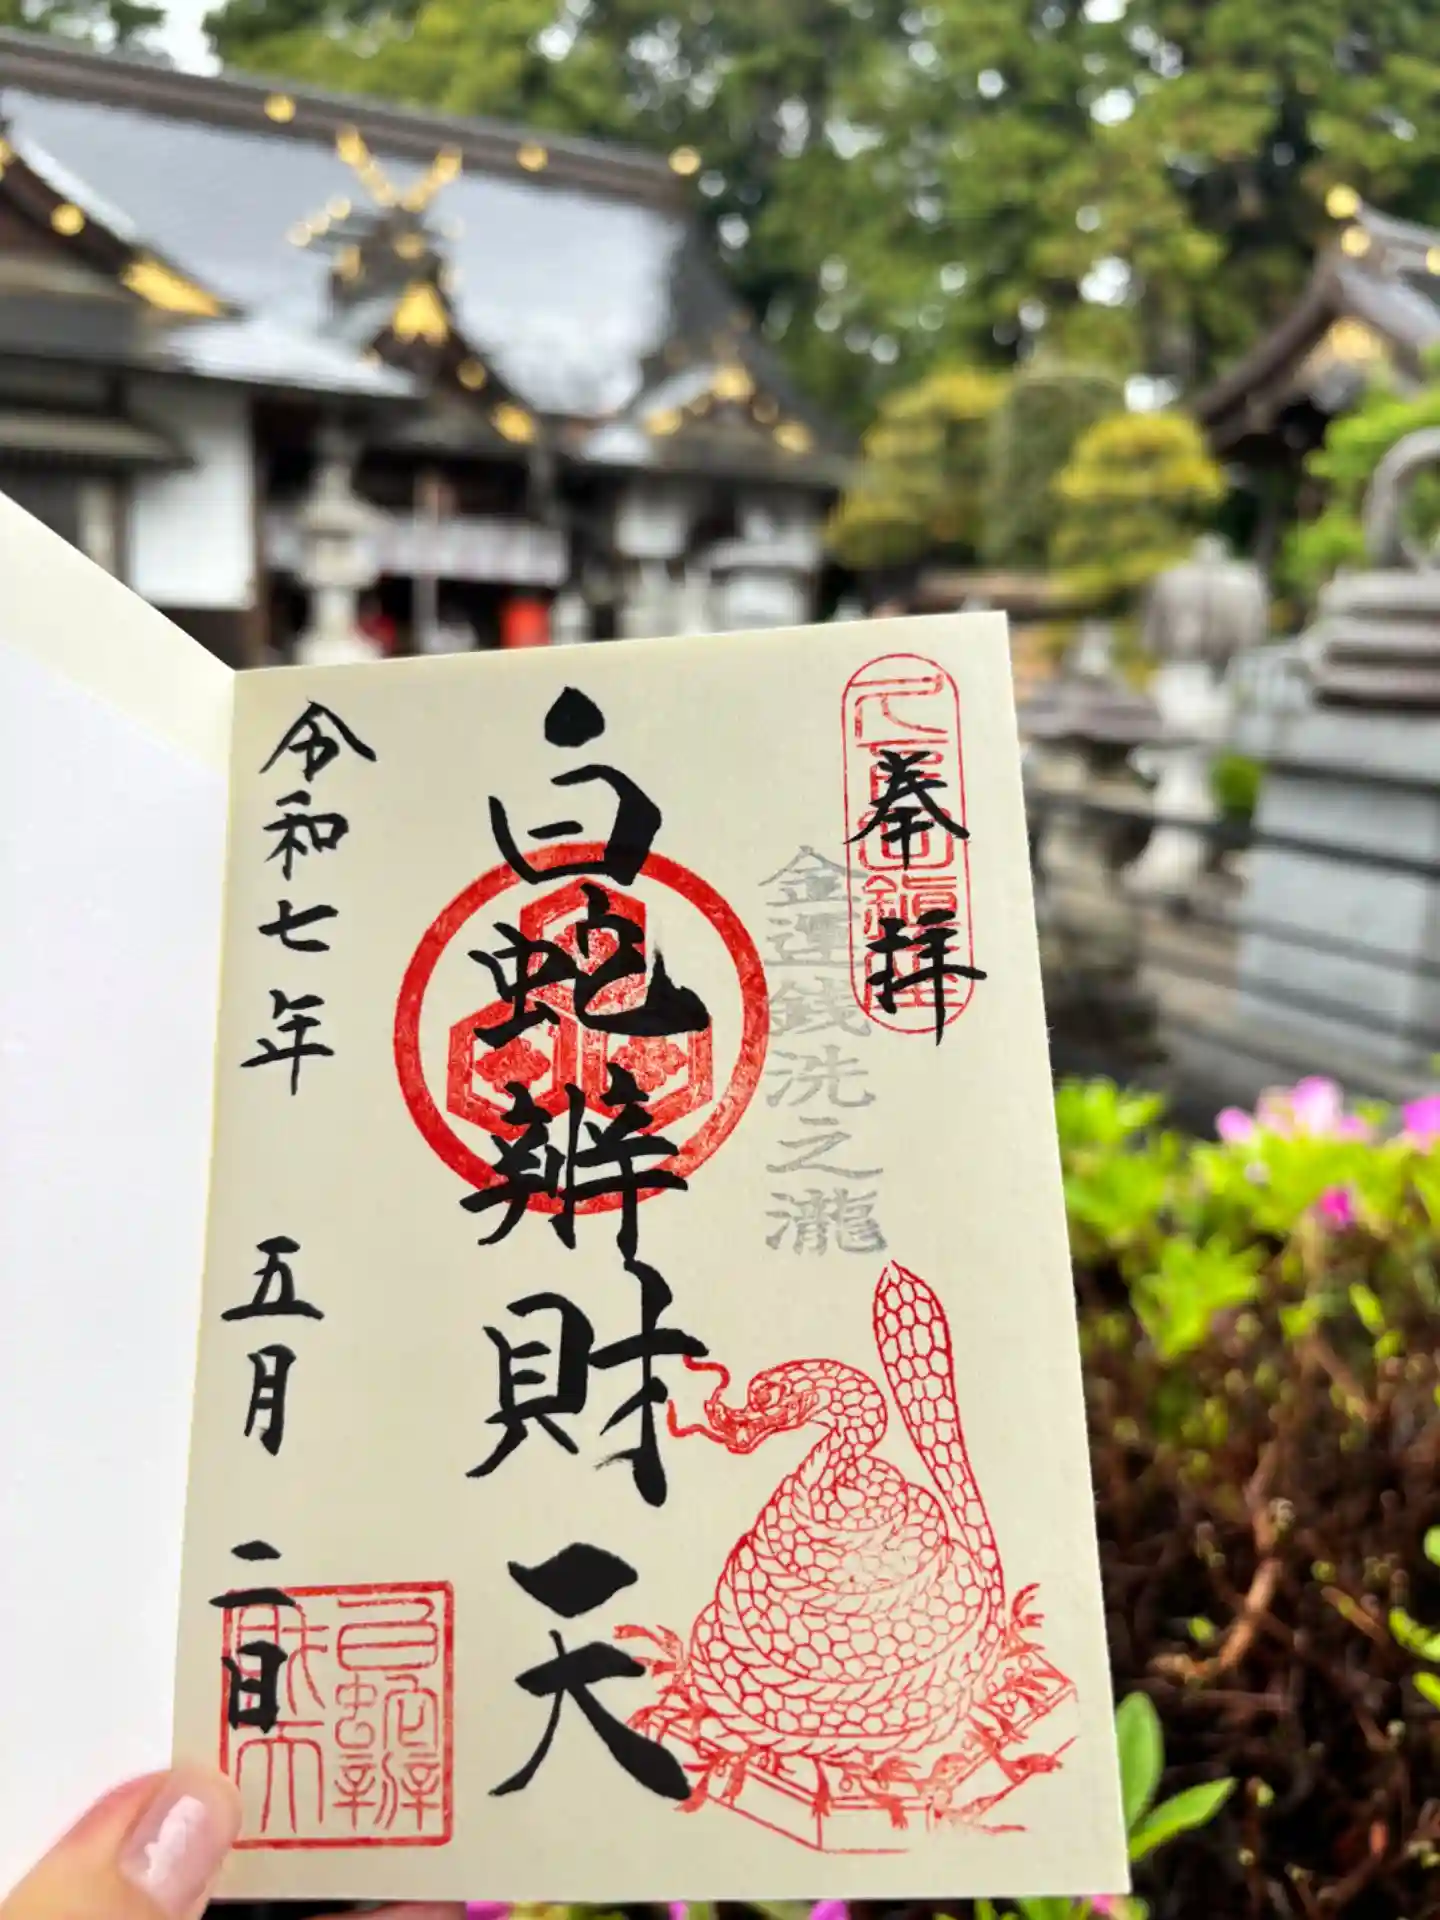 奉拝
金運銭洗之瀧
白蛇辨財天
令和七年 五月 二日
白蛇辨
財天